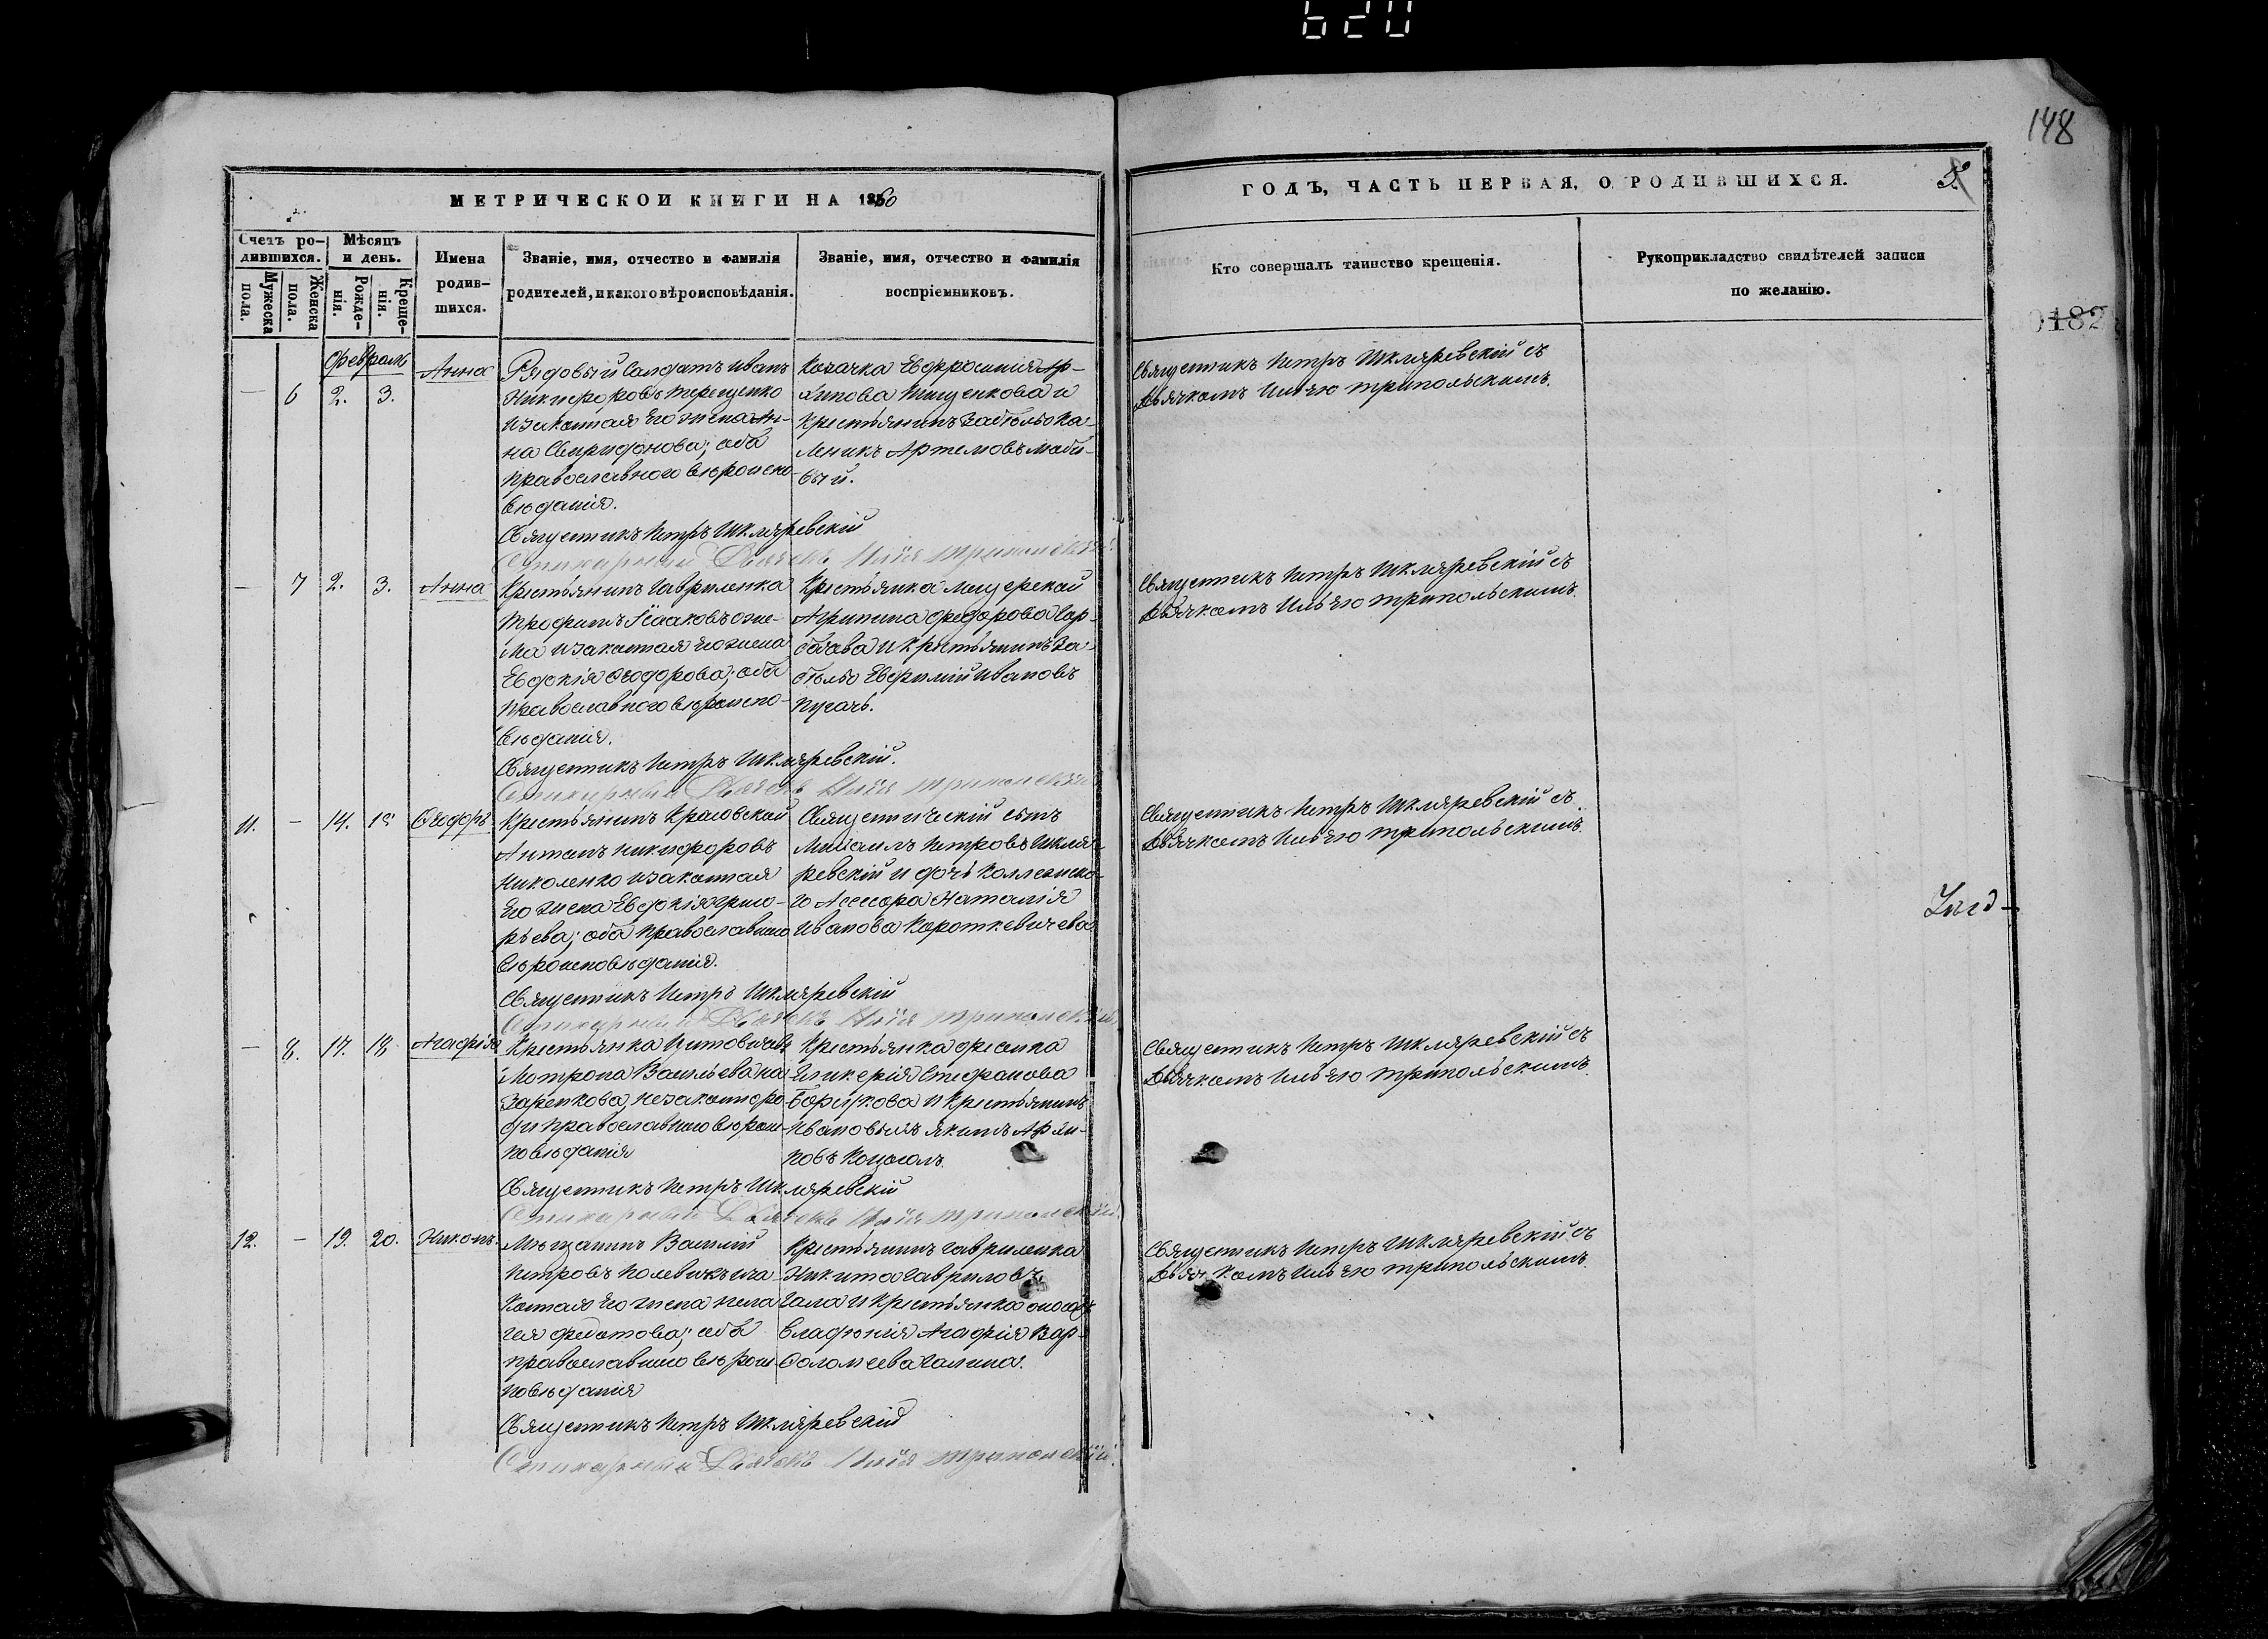 620
148
МЕТРИЧЕСКОЙ КНИГИ НА 1860
ГОДЪ, ЧАСТЬ ПЕРВАЯ, О РОДИВШИХСЯ.
Счетъ родившихся.
Мужеска пола.
Женска пола.
Мѣсяцъ и день.
Рожденія.
Крещенія.
Имена родившихся.
Званіе, имя, отчество и фамилія
родителей, и какого вѣроисповѣданія.
Званіе, имя, отчество и фамилія
воспріемниковъ.
Кто совершалъ таинство крещенія.
Рукоприкладство свидѣтелей записи
по желанію.
0182
Февраль
— 6 2. 3. Анна
Рядовый Солдатъ Иванъ
Никифоровъ Терещенко
и законная его жена Ан-
на Свиридонова; оба
православного вѣроиспо-
вѣданія.
Священникъ Петръ Шкляревскій
Стихарный Дьячекъ Илія Трипольскій.
Козачка Евфросинія Ар-
хипова Тищенкова и
Крестьянинъ
Артемовъ
вый.
Священникъ Петръ Шкляревскій съ
Дьячкомъ Ильею Трипольскимъ.
— 7 2. 3. Анна
Крестьянинъ Гавриленка
Трофимъ Ісааковъ
и законная его жена
Евдокія Феодорова; оба
православного вѣроиспо-
вѣданія.
Священникъ Петръ Шкляревскій.
Стихарный Дьячекъ Илія Трипольскій
Крестьянка Мищерской
Агрипина Федорова
и Крестьянинъ За-
Евфимій Ивановъ
Пугачь.
Священникъ Петръ Шкляревскій съ
Дьячкомъ Ильею Трипольскимъ.
11. — 14. 15 Феодоръ
Крестьянинъ Красовской
Антонъ Никифоровъ
Николенко и законная
его жена Евдокія Григо-
рьева; оба православного
вѣроисповѣданія.
Священникъ Петръ Шкляревскій
Стихарный Дьячекъ Илія Трипольскій.
Священническій сынъ
Михаилъ Петровъ Шкля-
ревскій и дочь Коллежско-
го Ассесора Наталія
Иванова Короткевичева
Священникъ Петръ Шкляревскій съ
Дьячкомъ Ильею Трипольскимъ.
— 8. 17. 18 Агафія
Крестьянка
Мотрона Васильева
Заренкова, незаконно ро-
православного вѣроис-
повѣданія
Священникъ Петръ Шкляревскій
Стихарный Дьячекъ Илія Трипольскій.
Крестьянка
Гликерія Стефанова
и Крестьянинъ
Якимъ
Священникъ Петръ Шкляревскій съ
Дьячкомъ Ильею Трипольскимъ.
12. — 19. 20. Никонъ.
Мѣщанинъ Василій
Петровъ и за-
конная его жена Пела-
гея Федотова; оба
православного вѣроис-
повѣданія
Священникъ Петръ Шкляревскій
Стихарный Дьячекъ Илія Трипольскій.
Крестьянинъ Гавриленка
Никита Гавриловъ
Гала и Крестьянка
Агафія Вар-
фоломеева Галина.
Священникъ Петръ Шкляревскій съ
Дьячкомъ Ильею Трипольскимъ.